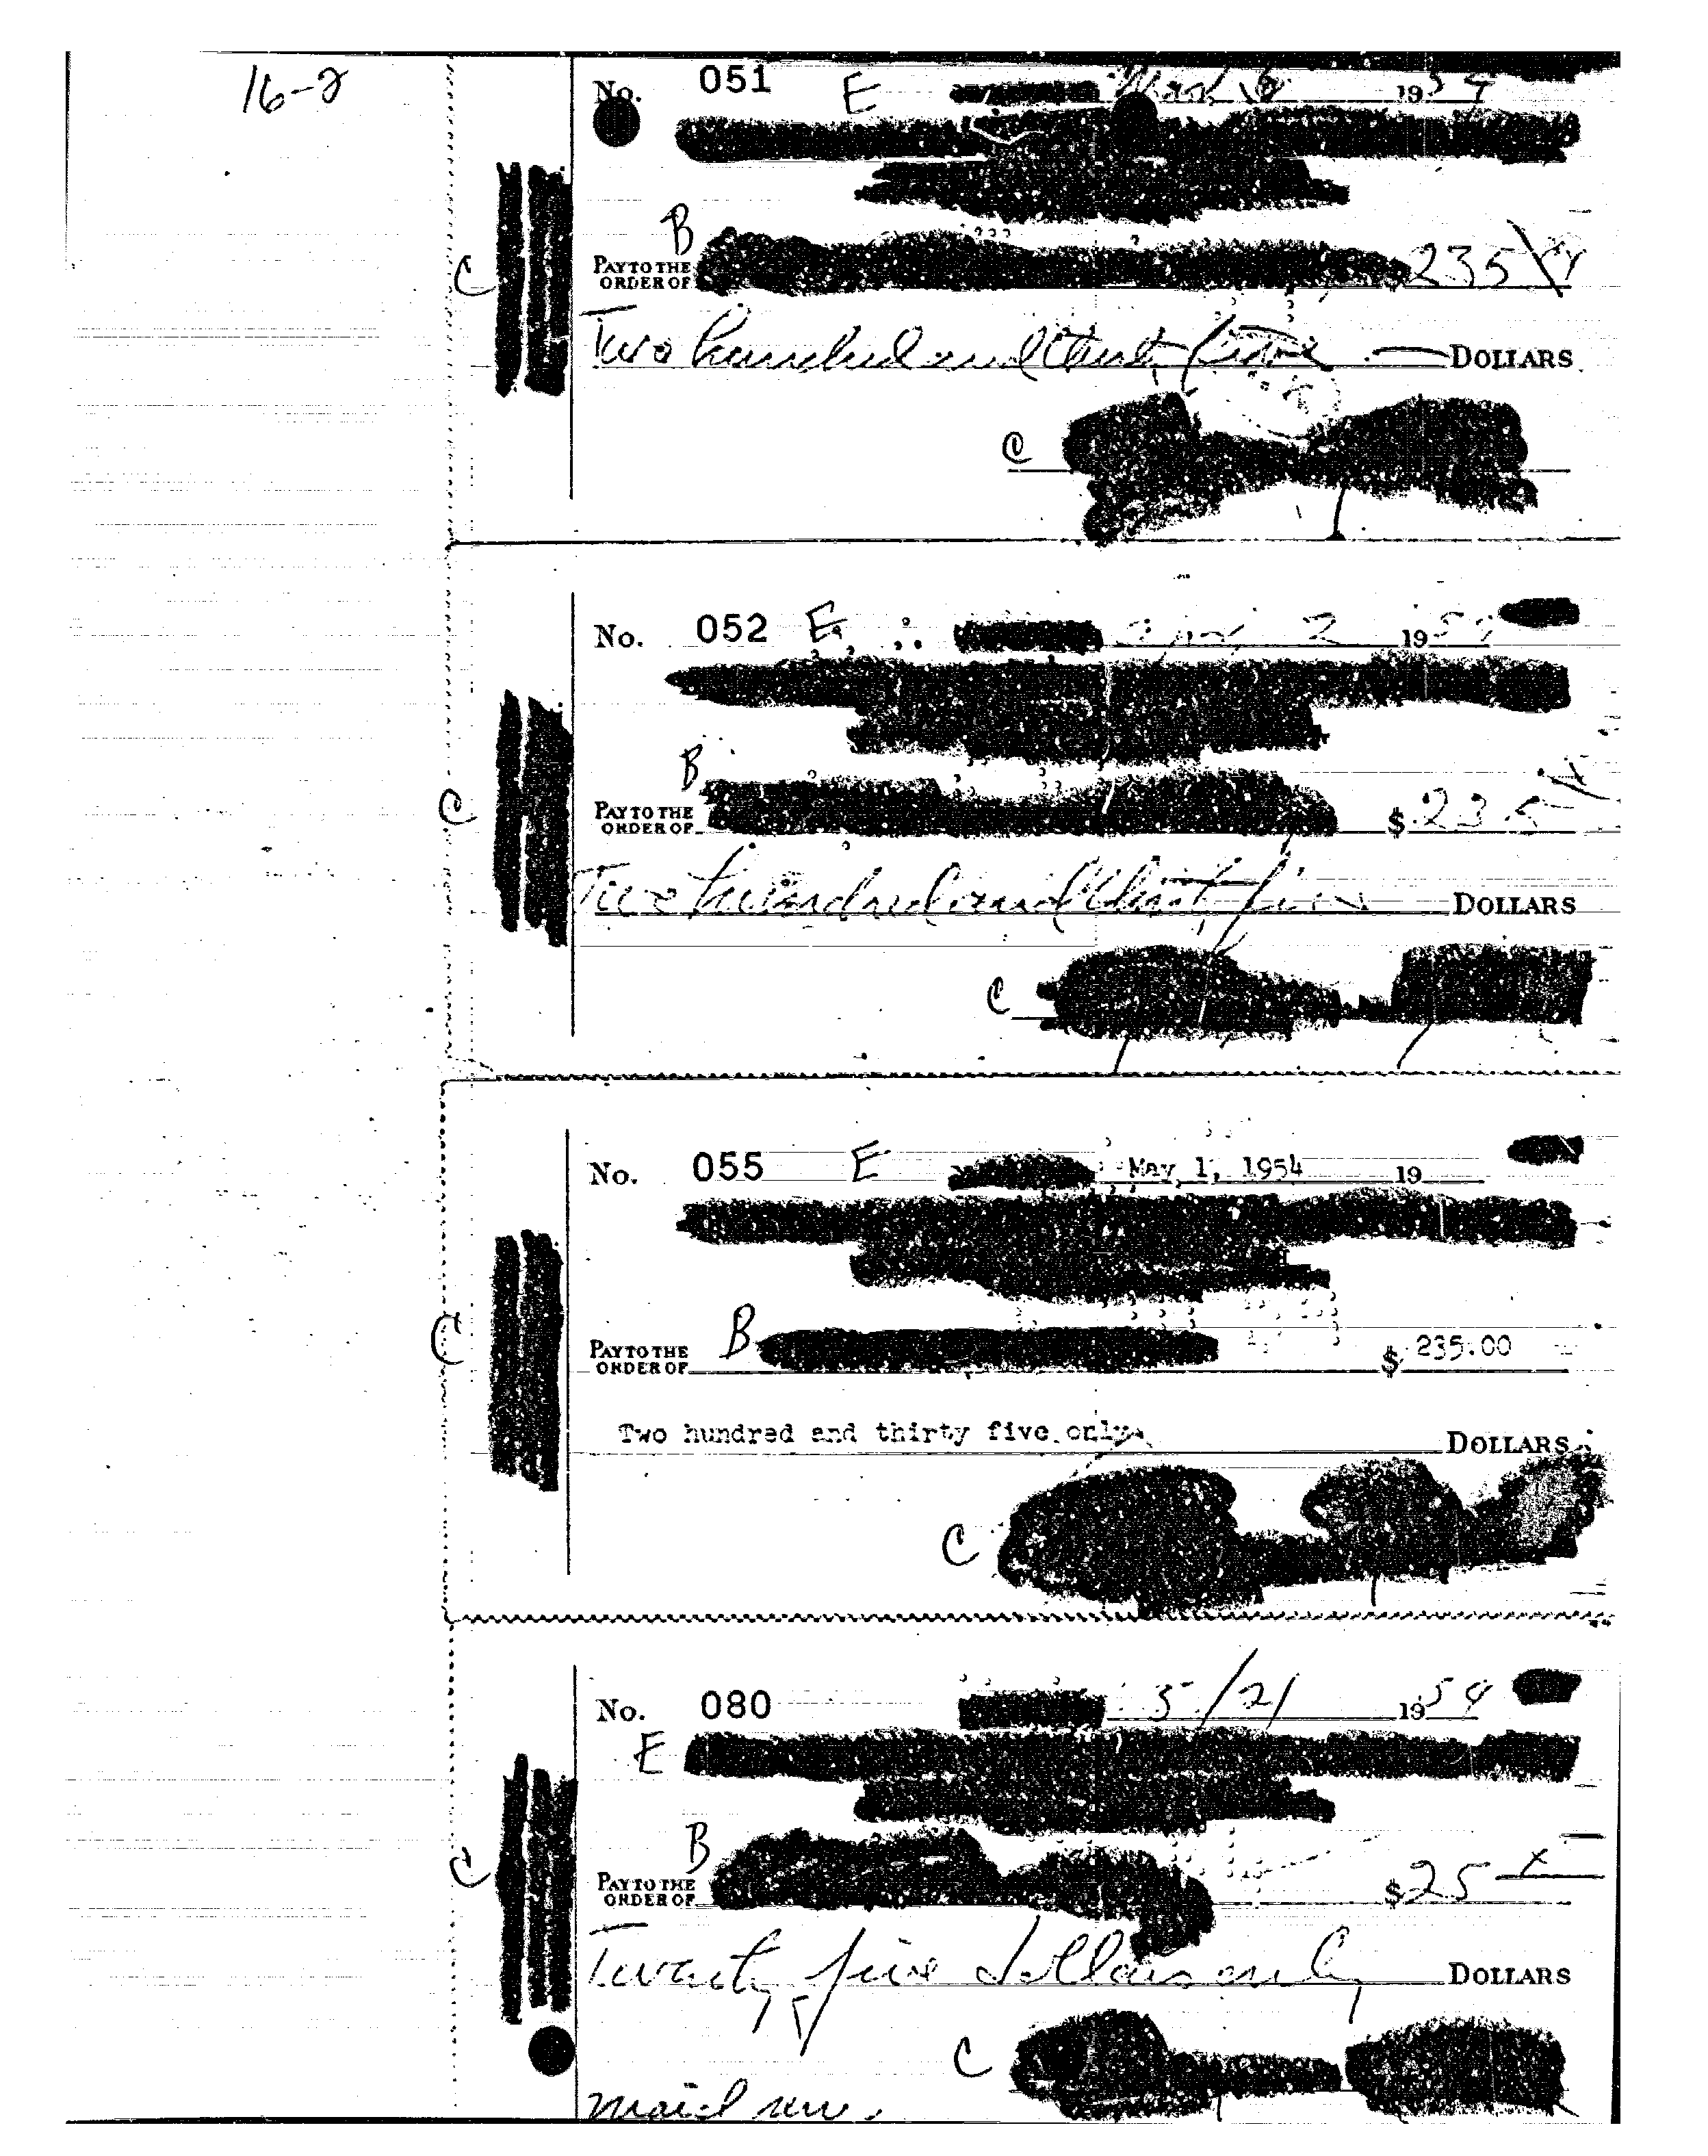 16-2
No. 051 E 1954
B
PAY TO THE
ORDER OF 235
C
Two hundred and thirty five DOLLARS
C
No. 052 E 2 1954
B
C
PAY TO THE
ORDER OF $ 235
Two hundred and thirty five DOLLARS
C
No. 055 E May 1, 1954 19
B
C
PAY TO THE
ORDER OF $ 235.00
Two hundred and thirty five only DOLLARS
C
No. 080 5/21 1954
E
B
C
PAY TO THE
ORDER OF $25
Twenty five dollars only DOLLARS
C
maid